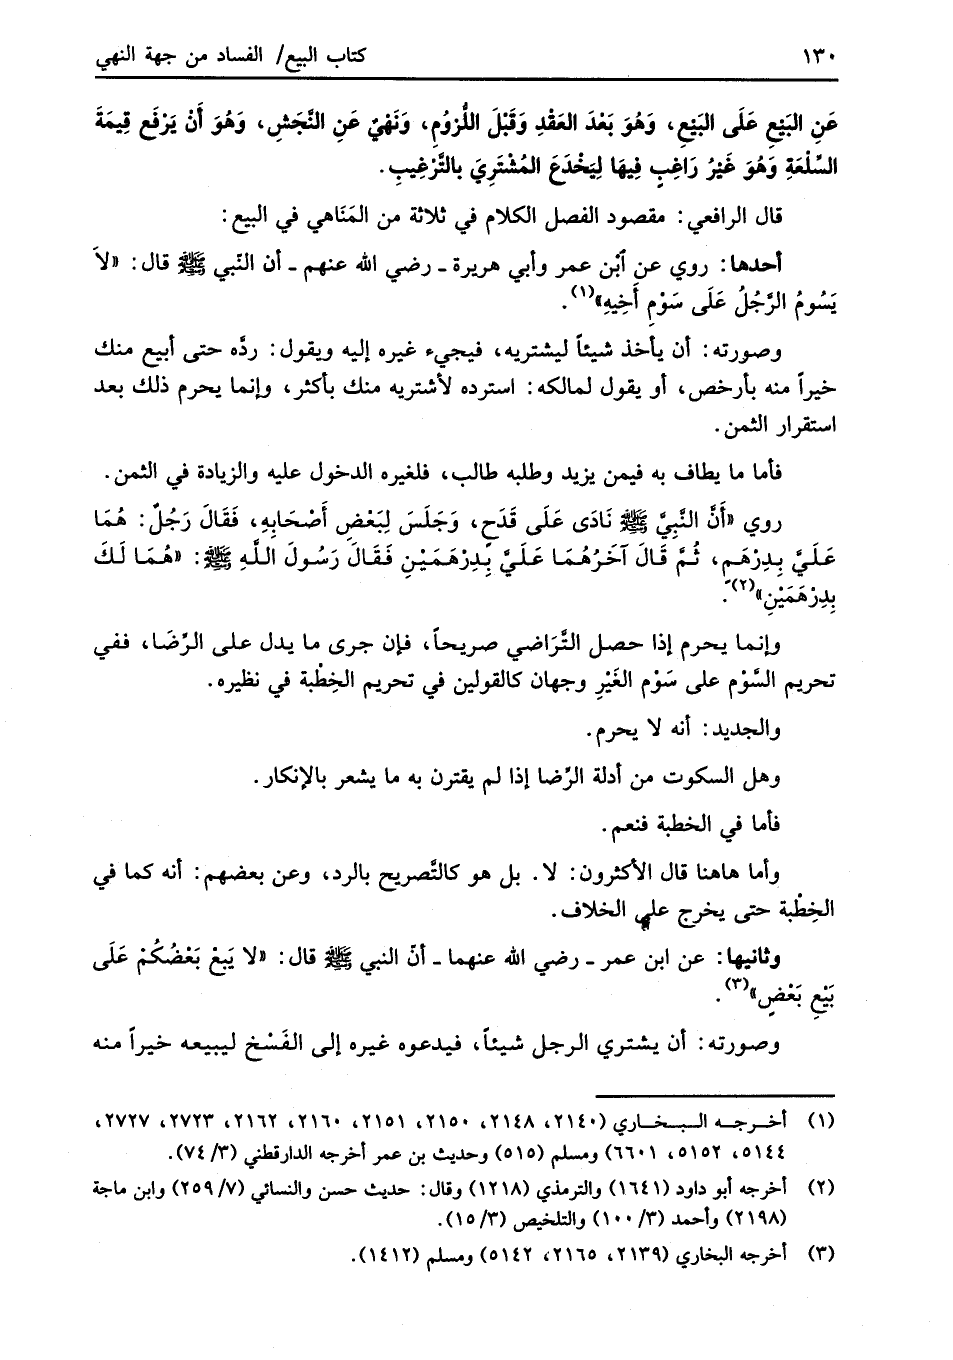 ١٣٠ كتاب البيع/ الفساد من جهة النهي
عَنِ البَيْعِ عَلَى البَيْعِ، وَهُوَ بَعْدَ العَقْدِ وَقَبْلَ اللُّزوُمِ، وَنَهْيٌ عَنِ النَّجَشِ، وَهُوَ أَنْ يَرْفَع قِيمَةَ
السِّلْعَةِ وَهُوَ غَيْرُ رَاغِبٍ فِيهَا لِيَخْدَعَ المُشْتَرِيَ بالتَّرْغِيبِ.
قال الرافعي: مقصود الفصل الكلام في ثلاثة من المَنَاهي في البيع:
أحدها: روي عن ٱبْن عمر وأبي هريرة ـ رضي الله عنهم ـ أن النّبي ﷺ قال: «لاَ
يَسُومُ الرَّجُلُ عَلَى سَوْمِ أَخِيهِ»(١).
وصورته: أن يأخذ شيئاً ليشتريه، فيجيء غيره إليه ويقول: ردَّه حتى أبيع منك
خيراً منه بأرخص، أو يقول لمالكه: استرده لأشتريه منك بأكثر، وإنما يحرم ذلك بعد
استقرار الثمن.
فأما ما يطاف به فيمن يزيد وطلبه طالب، فلغيره الدخول عليه والزيادة في الثمن.
روي «أَنَّ النَّبِيَّ ﷺ نَادَى عَلَى قَدَحٍ، وَجَلَسَ لِبَعْضِ أَصْحَابِهِ، فَقَالَ رَجُلٌ: هُمَا
عَلَيَّ بِدِرْهَمٍ، ثُمَّ قَالَ آخَرُهُمَا عَلَيَّ بِدِرْهَمَيْنِ فَقَالَ رَسُولَ اللَّهِ ﷺ: «هُمَا لَكَ
بِدِرْهَمَيْنِ»(٢).
وإنما يحرم إذا حصل التَّرَاضي صريحاً، فإن جرى ما يدل على الرِّضَا، ففي
تحريم السَّوْم على سَوْم الغَيْرِ وجهان كالقولين في تحريم الخِطْبة في نظيره.
والجديد: أنه لا يحرم.
وهل السكوت من أدلة الرِّضا إذا لم يقترن به ما يشعر بالإنكار.
فأما في الخطبة فنعم.
وأما هاهنا قال الأكثرون: لا. بل هو كالتَّصريح بالرد، وعن بعضهم: أنه كما في
الخِطْبة حتى يخرج على الخلاف.
وثانيها: عن ابن عمر ـ رضي الله عنهما ـ أنّ النبي ﷺ قال: «لا يَبعْ بَعْضُكُمْ عَلَى
بَيْعِ بَعْضٍ»(٣).
وصورته: أن يشتري الرجل شيئاً، فيدعوه غيره إلى الفَسْخ ليبيعه خيراً منه
(١) أخرجه البخاري (٢١٤٠، ٢١٤٨، ٢١٥٠، ٢١٥١، ٢١٦٠، ٢١٦٢، ٢٧٢٣، ٢٧٢٧،
٥١٤٤، ٥١٥٢، ٦٦٠١) ومسلم (٥١٥) وحديث بن عمر أخرجه الدارقطني (٣/ ٧٤).
(٢) أخرجه أبو داود (١٦٤١) والترمذي (١٢١٨) وقال: حديث حسن والنسائي (٧/ ٢٥٩) وابن ماجة
(٢١٩٨) وأحمد (٣/ ١٠٠) والتلخيص (٣/ ١٥).
(٣) أخرجه البخاري (٢١٣٩، ٢١٦٥، ٥١٤٢) ومسلم (١٤١٢).